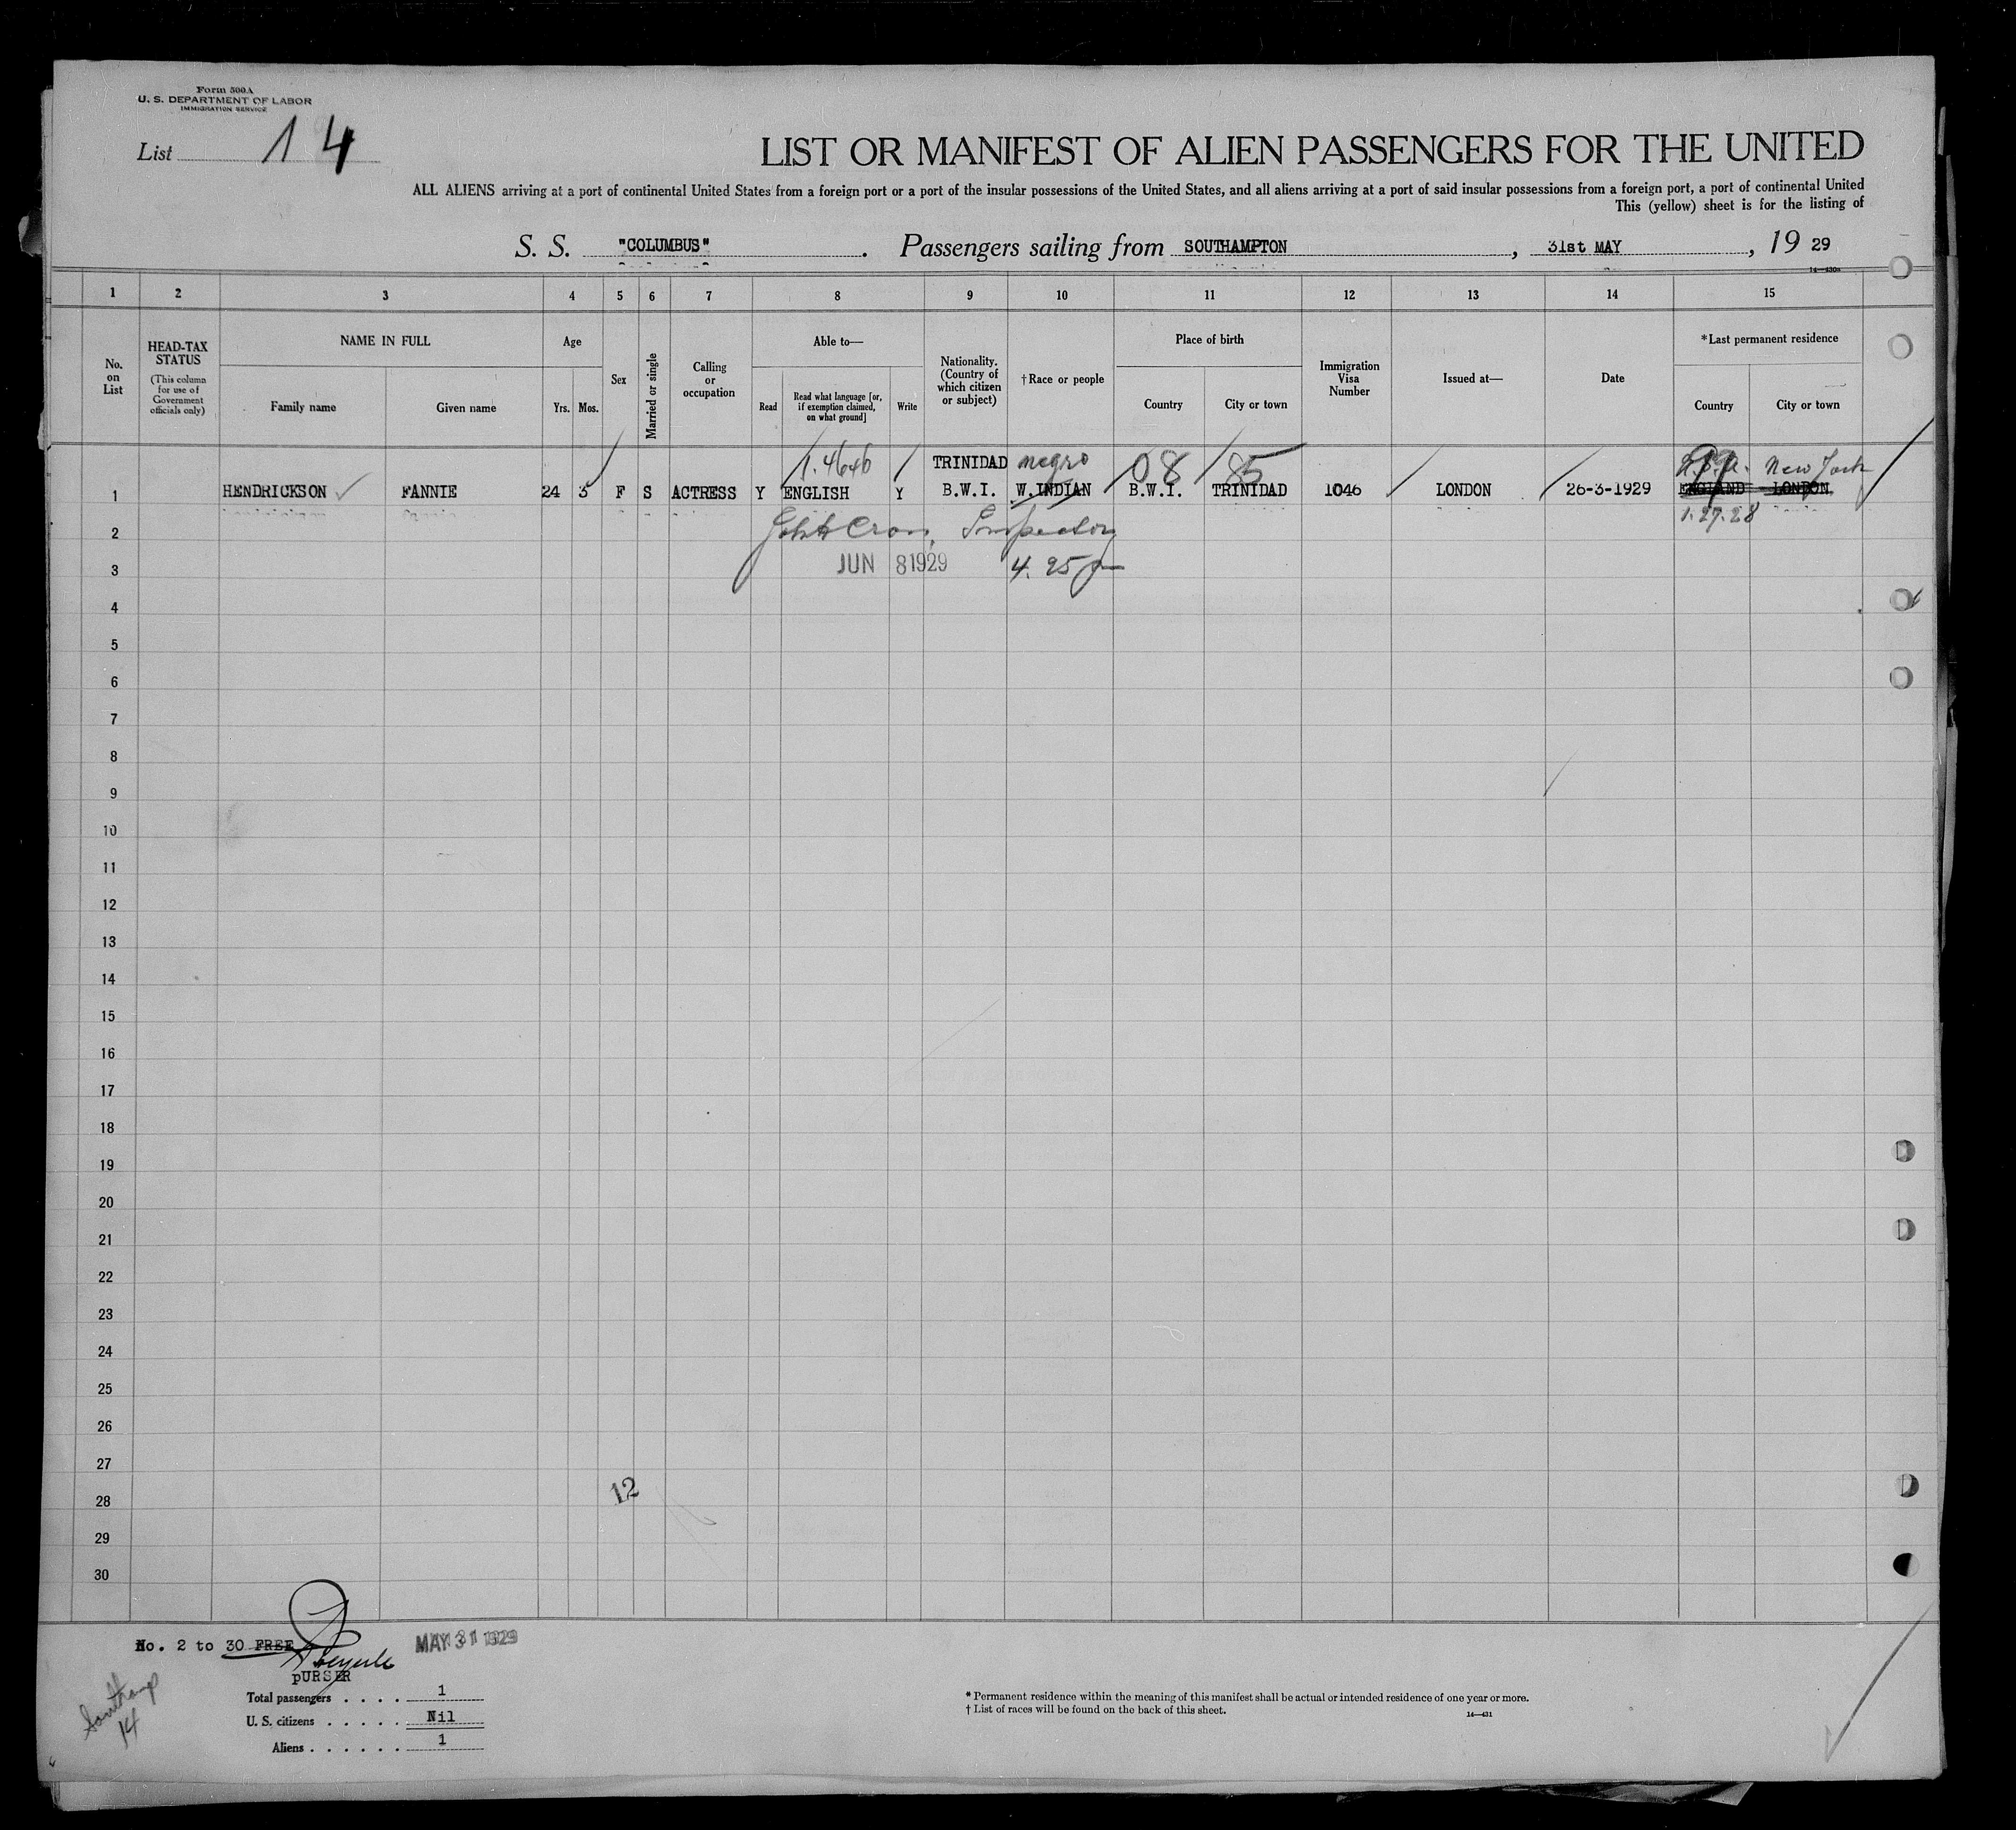 Form 500A
U. S. DEPARTMENT OF LABOR
IMMIGRATION SERVICE
List 14
LIST OR MANIFEST OF ALIEN PASSENGERS FOR THE UNITED
ALL ALIENS arriving at a port of continental United States from a foreign port or a port of the insular possessions of the United States, and all aliens arriving at a port of said insular possessions from a foreign port, a port of continental United
This (yellow) sheet is for the listing of
S. S. "COLUMBUS". Passengers sailing from SOUTHAMPTON, 31st MAY, 19 29
14—430a
1 2 3 4 5 6 7 8 9 10 11 12 13 14 15
No. on List
HEAD-TAX STATUS
(This column for use of Government officials only)
NAME IN FULL
Family name
Given name
Age
Yrs. Mos.
Sex
Married or single
Calling or occupation
Able to—
Read
Read what language [or, if exemption claimed, on what ground]
Write
Nationality. (Country of which citizen or subject)
†Race or people
Place of birth
Country
City or town
Immigration Visa Number
Issued at—
Date
*Last permanent residence
Country
City or town
1.4646 TRINIDAD negro 08 85 U.S.A. 99 New York
1 HENDRICKSON FANNIE 24 3 F S ACTRESS Y ENGLISH Y B.W.I. W.INDIAN B.W.I. TRINIDAD 1046 LONDON 26-3-1929 ENGLAND LONDON
1.27.28
2 Inspector
3 JUN 8 1929 4.25 p
4
5
6
7
8
9
10
11
12
13
14
15
16
17
18
19
20
21
22
23
24
25
26
27
28 12
29
30
No. 2 to 30 FREE
MAY 31 1929
pURSER
Total passengers . . . . 1
U. S. citizens . . . . . Nil
Aliens . . . . . . 1
Southamp
14
* Permanent residence within the meaning of this manifest shall be actual or intended residence of one year or more.
† List of races will be found on the back of this sheet.
14—431